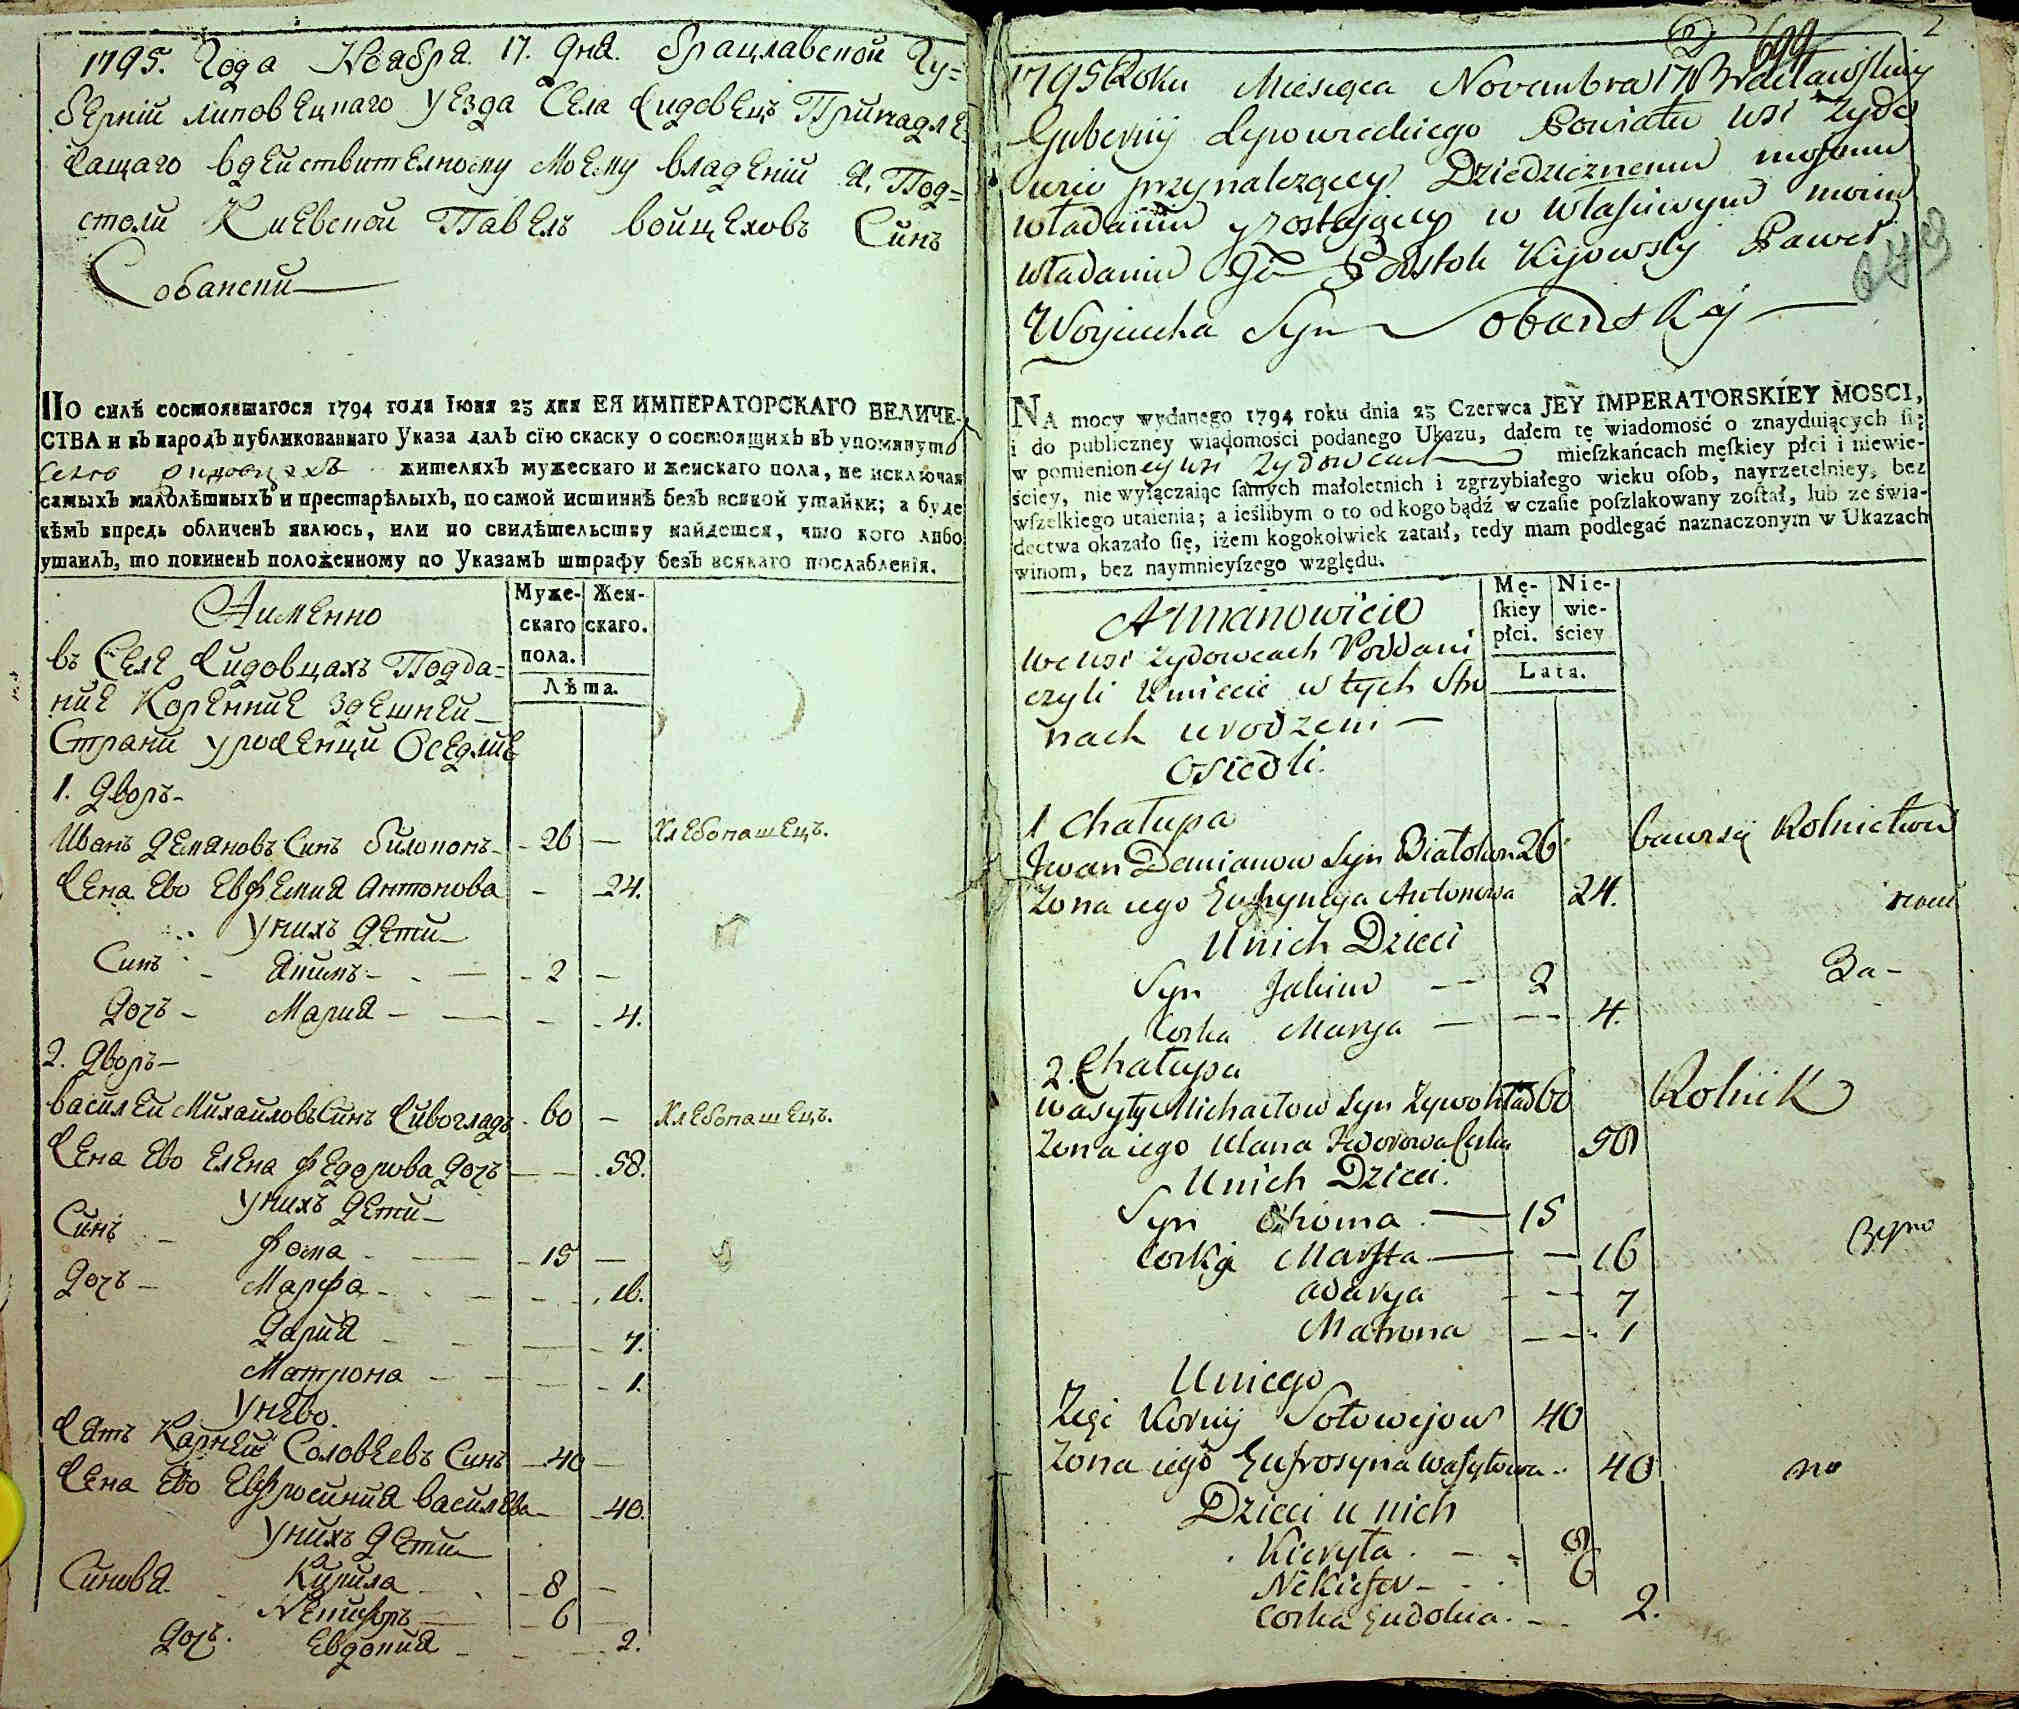 1795. Года Ноября. 17. Дня. Брацлавской Гу=
Берніи Липовецкаго уезда Села Жидовецъ Принадле=
жащаго вдействителному моему владеніи Я, Под=
столи Киевской Павелъ Войцеховъ Синъ
Собански
ПО силѣ состоявшагося 1794 года Іюня 23 дня ЕЯ ИМПЕРАТОРСКАГО ВЕЛИЧЕ-
СТВА и въ народъ публикованнаго Указа далъ сїю скаску о состоящихъ въ упомянуто
Жидовцахъ жителяхъ мужескаго и женскаго пола, не исключая
самыхъ малолѣтныхъ и престарѣлыхъ, по самой истиннѣ безъ всякой утайки; а буде
кѣмъ впредь обличенъ явлюсь, или по свидѣтельству найдется, что кого либо
утаилъ, то повиненъ положенному по Указамъ штрафу безъ всякаго послабленія.
Аименно
Муже-скаго пола. Жен-скаго.
Лѣта.
въ Селе Жидовцахъ Подда=
ние Коренние Здешней
Страни уроженци Оседлие
1. Дворъ
Иванъ Демяновъ Синъ Билоконъ 26 — Хлебопашецъ.
Жена Ево Евфемия Антонова - 24.
Унихъ Дети
Синъ Якимъ - 2 —
Дочъ - Мария - 4.
2. Дворъ
Василей Михайловъ Синъ Живогладъ 60 — Хлебопашецъ.
Жена Ево Елена Федорова Дочъ — 58.
Унихъ Дети
Синъ Фома - 15 —
Дочъ - Марфа - 16.
Дария - 7.
Матрона - 1.
Унево.
Жять Карней Соловеевъ Синъ 40 —
Жена Ево Евфросиния Василева 40.
Унихъ Дети
Синовя Кирила - 8 —
Никифоръ - 6
Дочъ. Евдокия - 2.
2 699 2
1795 Roku Miesiąca Novembra 17 Bracławskiey
Gubernij Lipowieckiego Powiatu wsi Żydo
wiec przynalezącey Dziedzicznemu mojemu
władaniu y zostającey w właściwym moim
władaniu Ja Podstoli Kijowsky Paweł
Woyciecha Syn Sobanskij
NA mocy wydanego 1794 roku dnia 23 Czerwca JEY IMPERATORSKIEY MOSCI,
i do publiczney wiadomości podanego Ukazu, dałem tę wiadomość o znayduiących się
w pomienioney wsi Zydowcach mieszkańcach męskiey płci i niewie-
ściey, nie wyłączaiąc samych małoletnich i zgrzybiałego wieku osob, nayrzetelniey, bez
wszelkiego utaienia; a ieślibym o to od kogo bądź w czasie poszlakowany został, lub ze świa-
dectwa okazało się, iżem kogokolwiek zataił, tedy mam podlegać naznaczonym w Ukazach
winom, bez naymnieyszego względu.
A Mianowicie
Mę-skiey płci. Nie-wie-ściey
Lata.
we wsi Zydowcach Poddani
czyli Kmiecie w tych Stro
nach urodzeni
Osiedli.
1 Chałupa
Iwan Demianow Syn Białokon 26 bawiący Rolnictwem
Zona iego Eufymija Antonowa 24.
Unich Dzieci
Syn Jakim -- 2 Za-
Corka Marya -- 4.
2. Chałupa
Wasyly Michaiłow Syn Zywohład 60 Rolnik
Zona iego Ulana Fedorowa Corka 58
Unich Dzieci.
Syn Choma 15
Corki Marfta 16
Darya 7
Matrona 1
Uniego
Zięć Korniy Sołowejow 40
Zona iego Eufrosyna Wasylowa 40 no
Dzieci u nich
Kieryła 8
Nekiefor 6
Corka Eudokia 2.